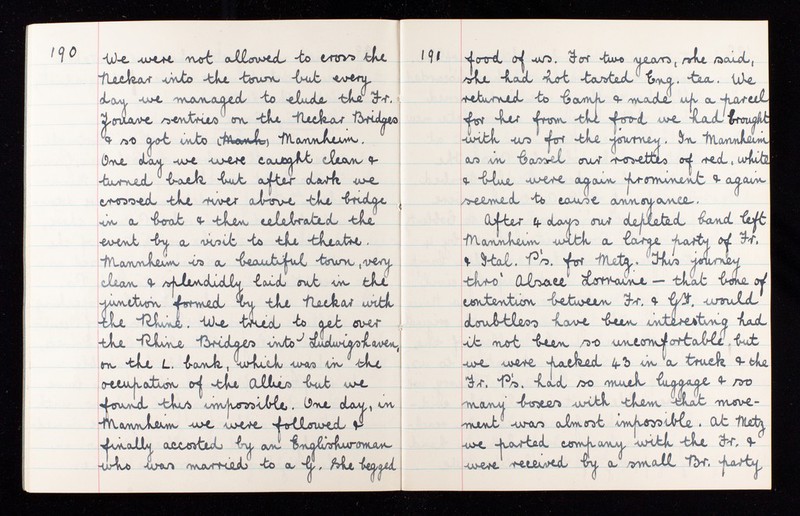 190
We were not allowed to cross the
Neckar into the town but every
day we managed to elude the Fr.
Zouave sentries on the Neckar Bridges
& so got into (Mannh) Mannheim.
One day we were caught clean &
turned back but after dark we
crossed the river above the bridge
in a boat & then celebrated the
event by a visit to the theatre.
Mannheim is a beautiful town, very
clean & splendidly laid out in the
junction formed by the Neckar with
the Rhine. We tried to get over
the Rhine Bridges into Ludwigshaven,
on the L. bank, which was in the
occupation of the Allies but we
found this impossible. One day, in
Mannheim we were followed &
finally accosted by an Englishwoman
who was married to a G. She begged
191
food of us. For two years, she said,
she had not tasted Eng. tea. We
returned to Camp & made up a parcel
for her from the food we had brought
with us for the journey. In Mannheim
as in Cassel our rosettes of red, white
& blue were again prominent & again
seemed to cause annoyance.
After 4 days our depleted band left
Mannheim with a large party of Fr.
& Ital. P's. for Metz. This journey
thro' Alsace Lorraine — that bone of
contention between Fr. & Gy. would
doubtless have been interesting had
it not been so uncomfortable, but
we were packed 43 in a truck & the
Fr. P's. had so much luggage & so
many boxes with them that move-
ment was almost impossible. At Metz
we parted company with the Fr. &
were received by a small Br. party